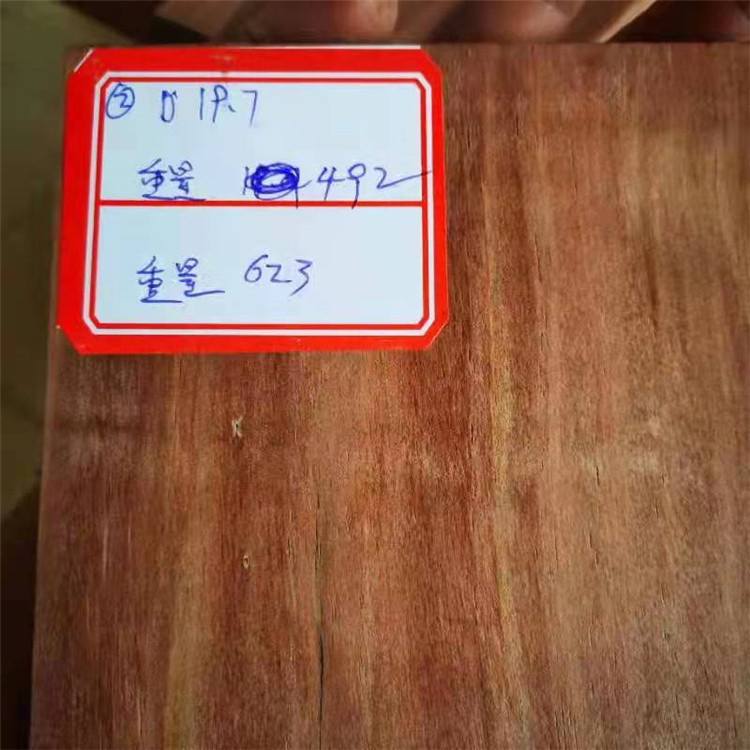 ② D 19.7
重量 492
重量 623